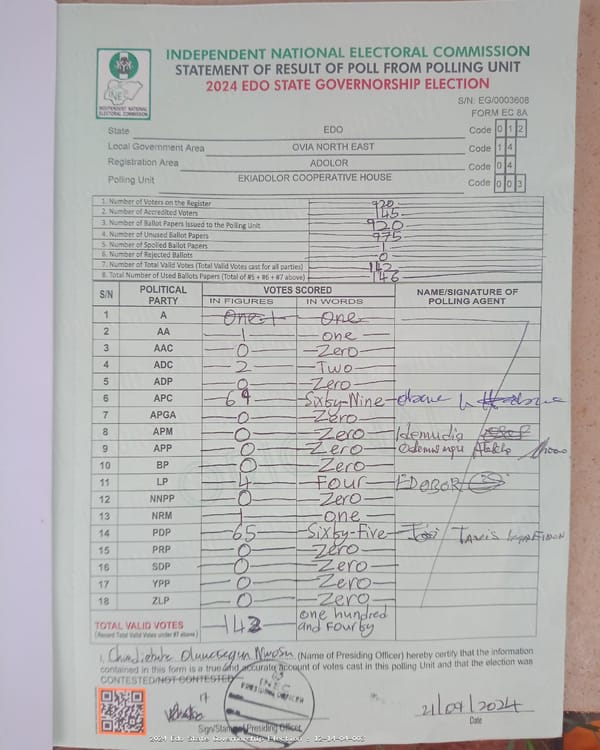 INDEPENDENT NATIONAL ELECTORAL COMMISSION
STATEMENT OF RESULT OF POLL FROM POLLING UNIT
2024 EDO STATE GOVERNORSHIP ELECTION
INEC
INDEPENDENT NATIONAL ELECTORAL COMMISSION
S/N: EG/0003608
FORM EC 8A
State EDO Code 0 1 2
Local Government Area OVIA NORTH EAST Code 1 4
Registration Area ADOLOR Code 0 4
Polling Unit EKIADOLOR COOPERATIVE HOUSE Code 0 0 3
1. Number of Voters on the Register 920
2. Number of Accredited Voters 145
3. Number of Ballot Papers Issued to the Polling Unit 920
4. Number of Unused Ballot Papers 775
5. Number of Spoiled Ballot Papers 1
6. Number of Rejected Ballots 0
7. Number of Total Valid Votes (Total Valid Votes cast for all parties) 142
8. Total Number of Used Ballots Papers (Total of #5 + #6 + #7 above) 146
S/N POLITICAL PARTY VOTES SCORED NAME/SIGNATURE OF POLLING AGENT
IN FIGURES IN WORDS
1 A One 1 One
2 AA 1 one
3 AAC 0 Zero
4 ADC 2 Two
5 ADP 0 Zero
6 APC 69 Sixty-Nine
7 APGA 0 Zero
8 APM 0 Zero Idemudia
9 APP 0 Zero
10 BP 0 Zero
11 LP 4 Four EDOBOR
12 NNPP 0 Zero
13 NRM 1 one
14 PDP 65 Sixty-Five
15 PRP 0 Zero
16 SDP 0 Zero
17 YPP 0 Zero
18 ZLP 0 Zero
TOTAL VALID VOTES 142 one hundred and Fourty
(Record Total Valid Votes under #7 above)
I, (Name of Presiding Officer) hereby certify that the information
contained in this form is a true and accurate account of votes cast in this polling Unit and that the election was
CONTESTED/NOT CONTESTED
INEC
PRESIDING OFFICER
21/09/2024
Sign/Stamp of Presiding Officer Date
2024 Edo State Governorship Election - 12-14-04-003